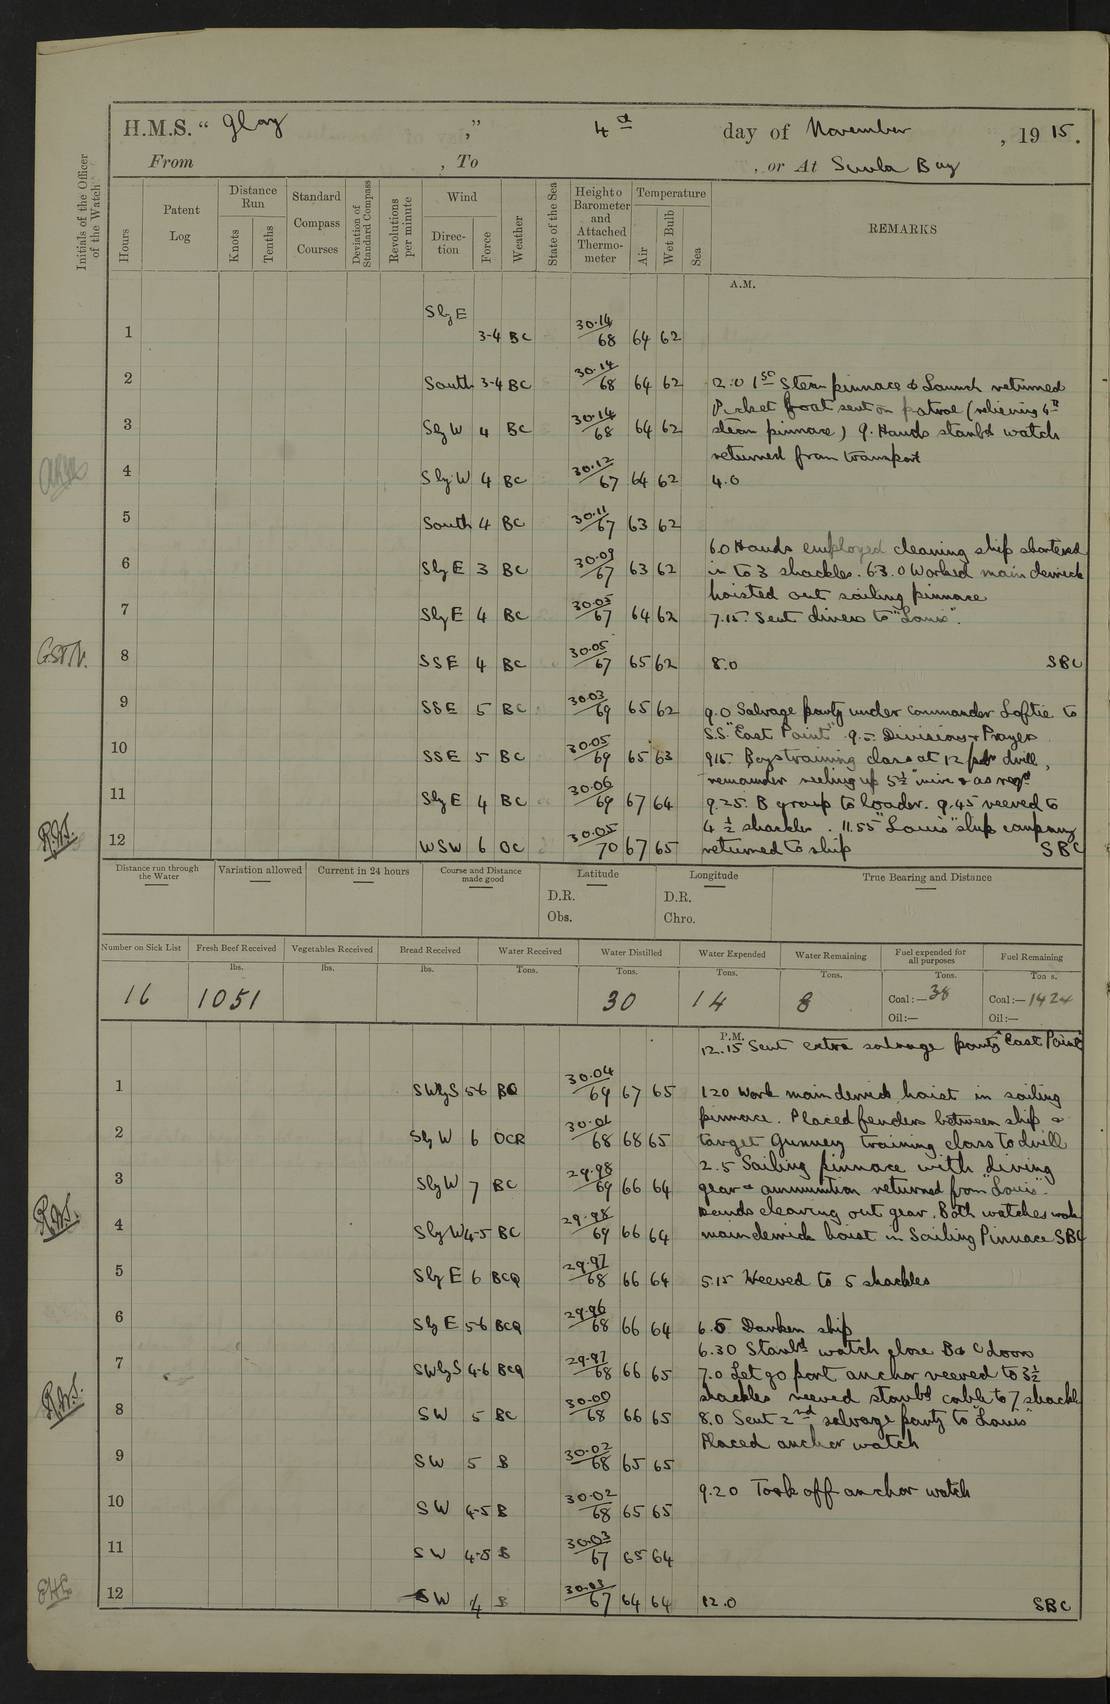 H.M.S. “ Glory ,” 4th day of November , 19 15.
From , To , or At Suvla Bay
Initials of the Officer of the Watch
Hours Patent Log Distance Run Knots Tenths Standard Compass Courses Deviation of Standard Compass Revolutions per minute Wind Direction Force Weather State of the Sea Height of Barometer and Attached Thermometer Temperature Air Wet Bulb Sea REMARKS
A.M.
1 S by E 3-4 BC 30.14/68 64 62
2 South 3-4 BC 30.14/68 64 62 2.0 1st Steam pinnace & Launch returned
Picket boat sent on patrol (relieving
3 S by W 4 BC 30.14/68 64 62 steam pinnace) 9. Hands starbd watch
returned from transport
4 S by W 4 BC 30.12/67 64 62 4.0
5 South 4 BC 30.11/67 63 62
6.0 Hands employed cleaning ship shortened
6 S by E 3 BC 30.09/67 63 62 in to 3 shackles. 6.30 Worked main derrick
hoisted out sailing pinnace
7 S by E 4 BC 30.05/67 64 62 7.15. Sent divers to "Louis".
8 SSE 4 BC 30.05/67 65 62 8.0 SBC
9 SSE 5 BC 30.03/69 65 62 9.0 Salvage party under Commander Loftie to
S.S. "East Point" 9.5 Divisions & Prayers
10 SSE 5 BC 30.05/69 65 63 9.15 Boys training class at 12 pdr drill,
remainder reeling up 5½" wire & as reqd
11 S by E 4 BC 30.06/69 67 64 9.25. B group to loader. 9.45 veered to
4½ shackles. 11.55 "Louis" ship company
12 WSW 6 OC 30.05/70 67 65 returned to ship SBC
Distance run through the Water Variation allowed Current in 24 hours Course and Distance made good Latitude Longitude True Bearing and Distance
D.R. D.R.
Obs. Chro.
Number on Sick List Fresh Beef Received Vegetables Received Bread Received Water Received Water Distilled Water Expended Water Remaining Fuel expended for all purposes Fuel Remaining
lbs. lbs. lbs. Tons. Tons. Tons. Tons. Tons. Tons.
16 1051 30 14 8 Coal:— 38 Coal:— 1424
Oil:— Oil:—
P.M.
12.15 Sent extra salvage party "East Point"
1 SW by S 5-6 BQ 30.04/69 67 65 1.20 Work main derrick hoist in sailing
pinnace. Placed fenders between ship &
2 S by W 6 OCR 30.01/68 68 65 target Gunnery training class to drill
2.5 Sailing pinnace with diving
3 S by W 7 BC 29.98/69 66 64 gear & ammunition returned from "Louis".
Hands clearing out gear. Both watches work
4 S by W 4-5 BC 29.98/69 66 64 main derrick hoist in Sailing Pinnace SBC
5 S by E 6 BCQ 29.97/68 66 64 5.15 Veered to 5 shackles
6 S by E 5-6 BCQ 29.96/68 66 64 6.5 Darken ship
6.30 Starbd watch close B & C doors
7 SW by S 4-6 BCQ 29.97/68 66 65 7.0 Let go port anchor veered to 3½
shackles veered starbd cable to 7 shackle
8 SW 5 BC 30.00/68 66 65 8.0 Sent 2nd salvage party to "Louis"
Placed anchor watch
9 SW 5 B 30.02/68 65 65
9.20 Took off anchor watch
10 SW 4-5 B 30.02/68 65 65
11 SW 4-5 B 30.03/67 65 64
12 SW 4 B 30.03/67 64 64 12.0 SBC